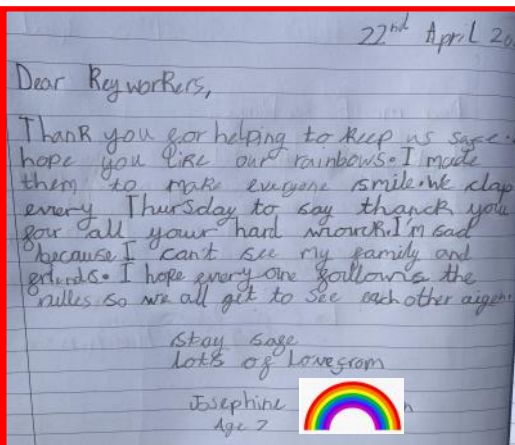 22nd April 20
Dear Keyworkers,
Thank you for helping to keep us safe.
hope you like our rainbows. I made
them to make everyone smile. We clap
every Thursday to say thanck you
for all yowr hard wourck. I'm sad
because I can't see my family and
friends. I hope every one follows the
rulles so we all get to see each other aigen.
Stay safe
Lots of Love from
Josephine
Age 7